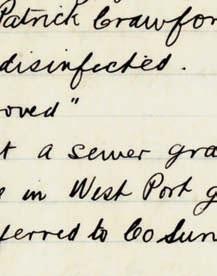 Patrick Crawfor
disinfected.
roved"
t a sewer gra
in West Port g
ferred to Co Sun